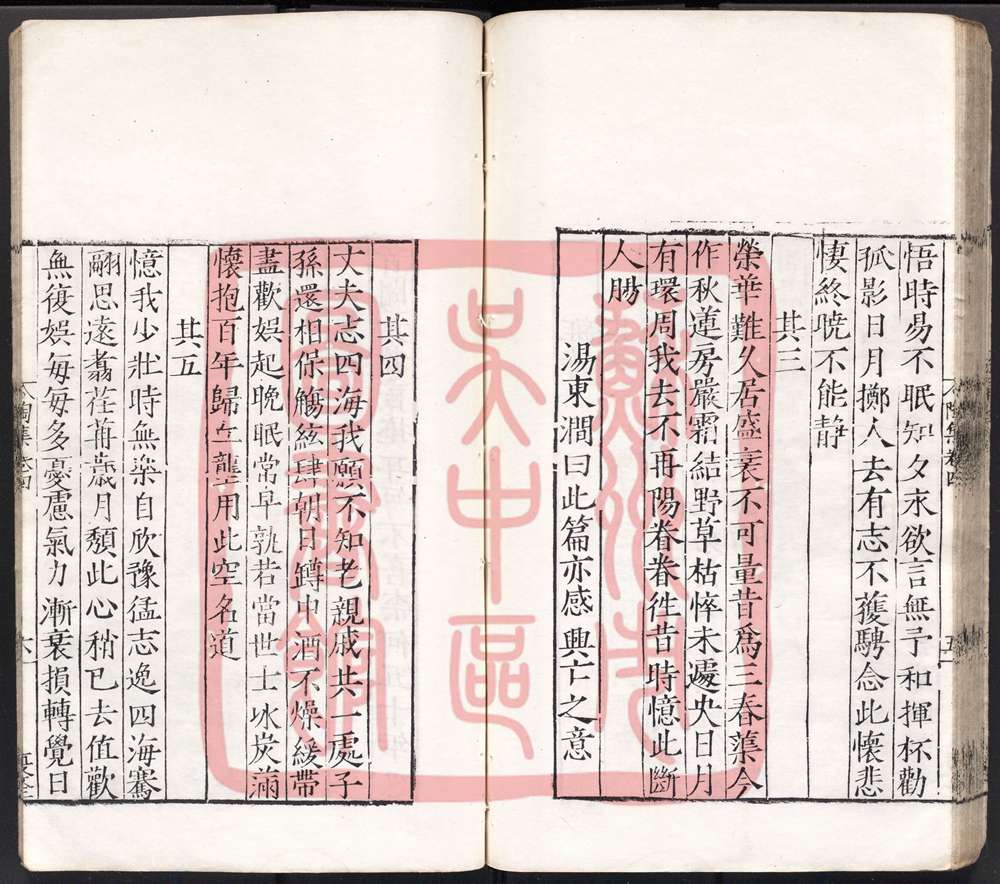 悟時易不眠知夕永欲言無予和揮杯勸
孤影日月擲人去有志不獲騁念此懷悲
悽終曉不能靜
其三
榮華難久居盛衰不可量昔爲三春蕖今
作秋蓮房嚴霜結野草枯悴未遽央日月
有環周我去不再陽眷眷徃昔時憶此斷
人腸
湯東澗曰此篇亦感興亡之意
陶集卷四
五
其四
丈夫志四海我願不知老親戚共一處子
孫還相保觴絃肆朝日罇中酒不燥緩帶
盡歡娛起晚眠常早孰若當世士冰炭滿
懷抱百年歸丘壟用此空名道
其五
憶我少壯時無樂自欣豫猛志逸四海騫
翮思遠翥荏苒歲月頹此心稍已去值歡
無復娛每每多憂慮氣力漸衰損轉覺日
陶集卷四
六
蘇州市
吳中區
圖書館